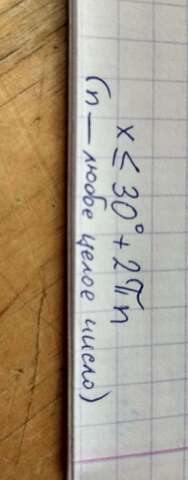 x ≤ 30° + 2πn
(n — любое целое число)